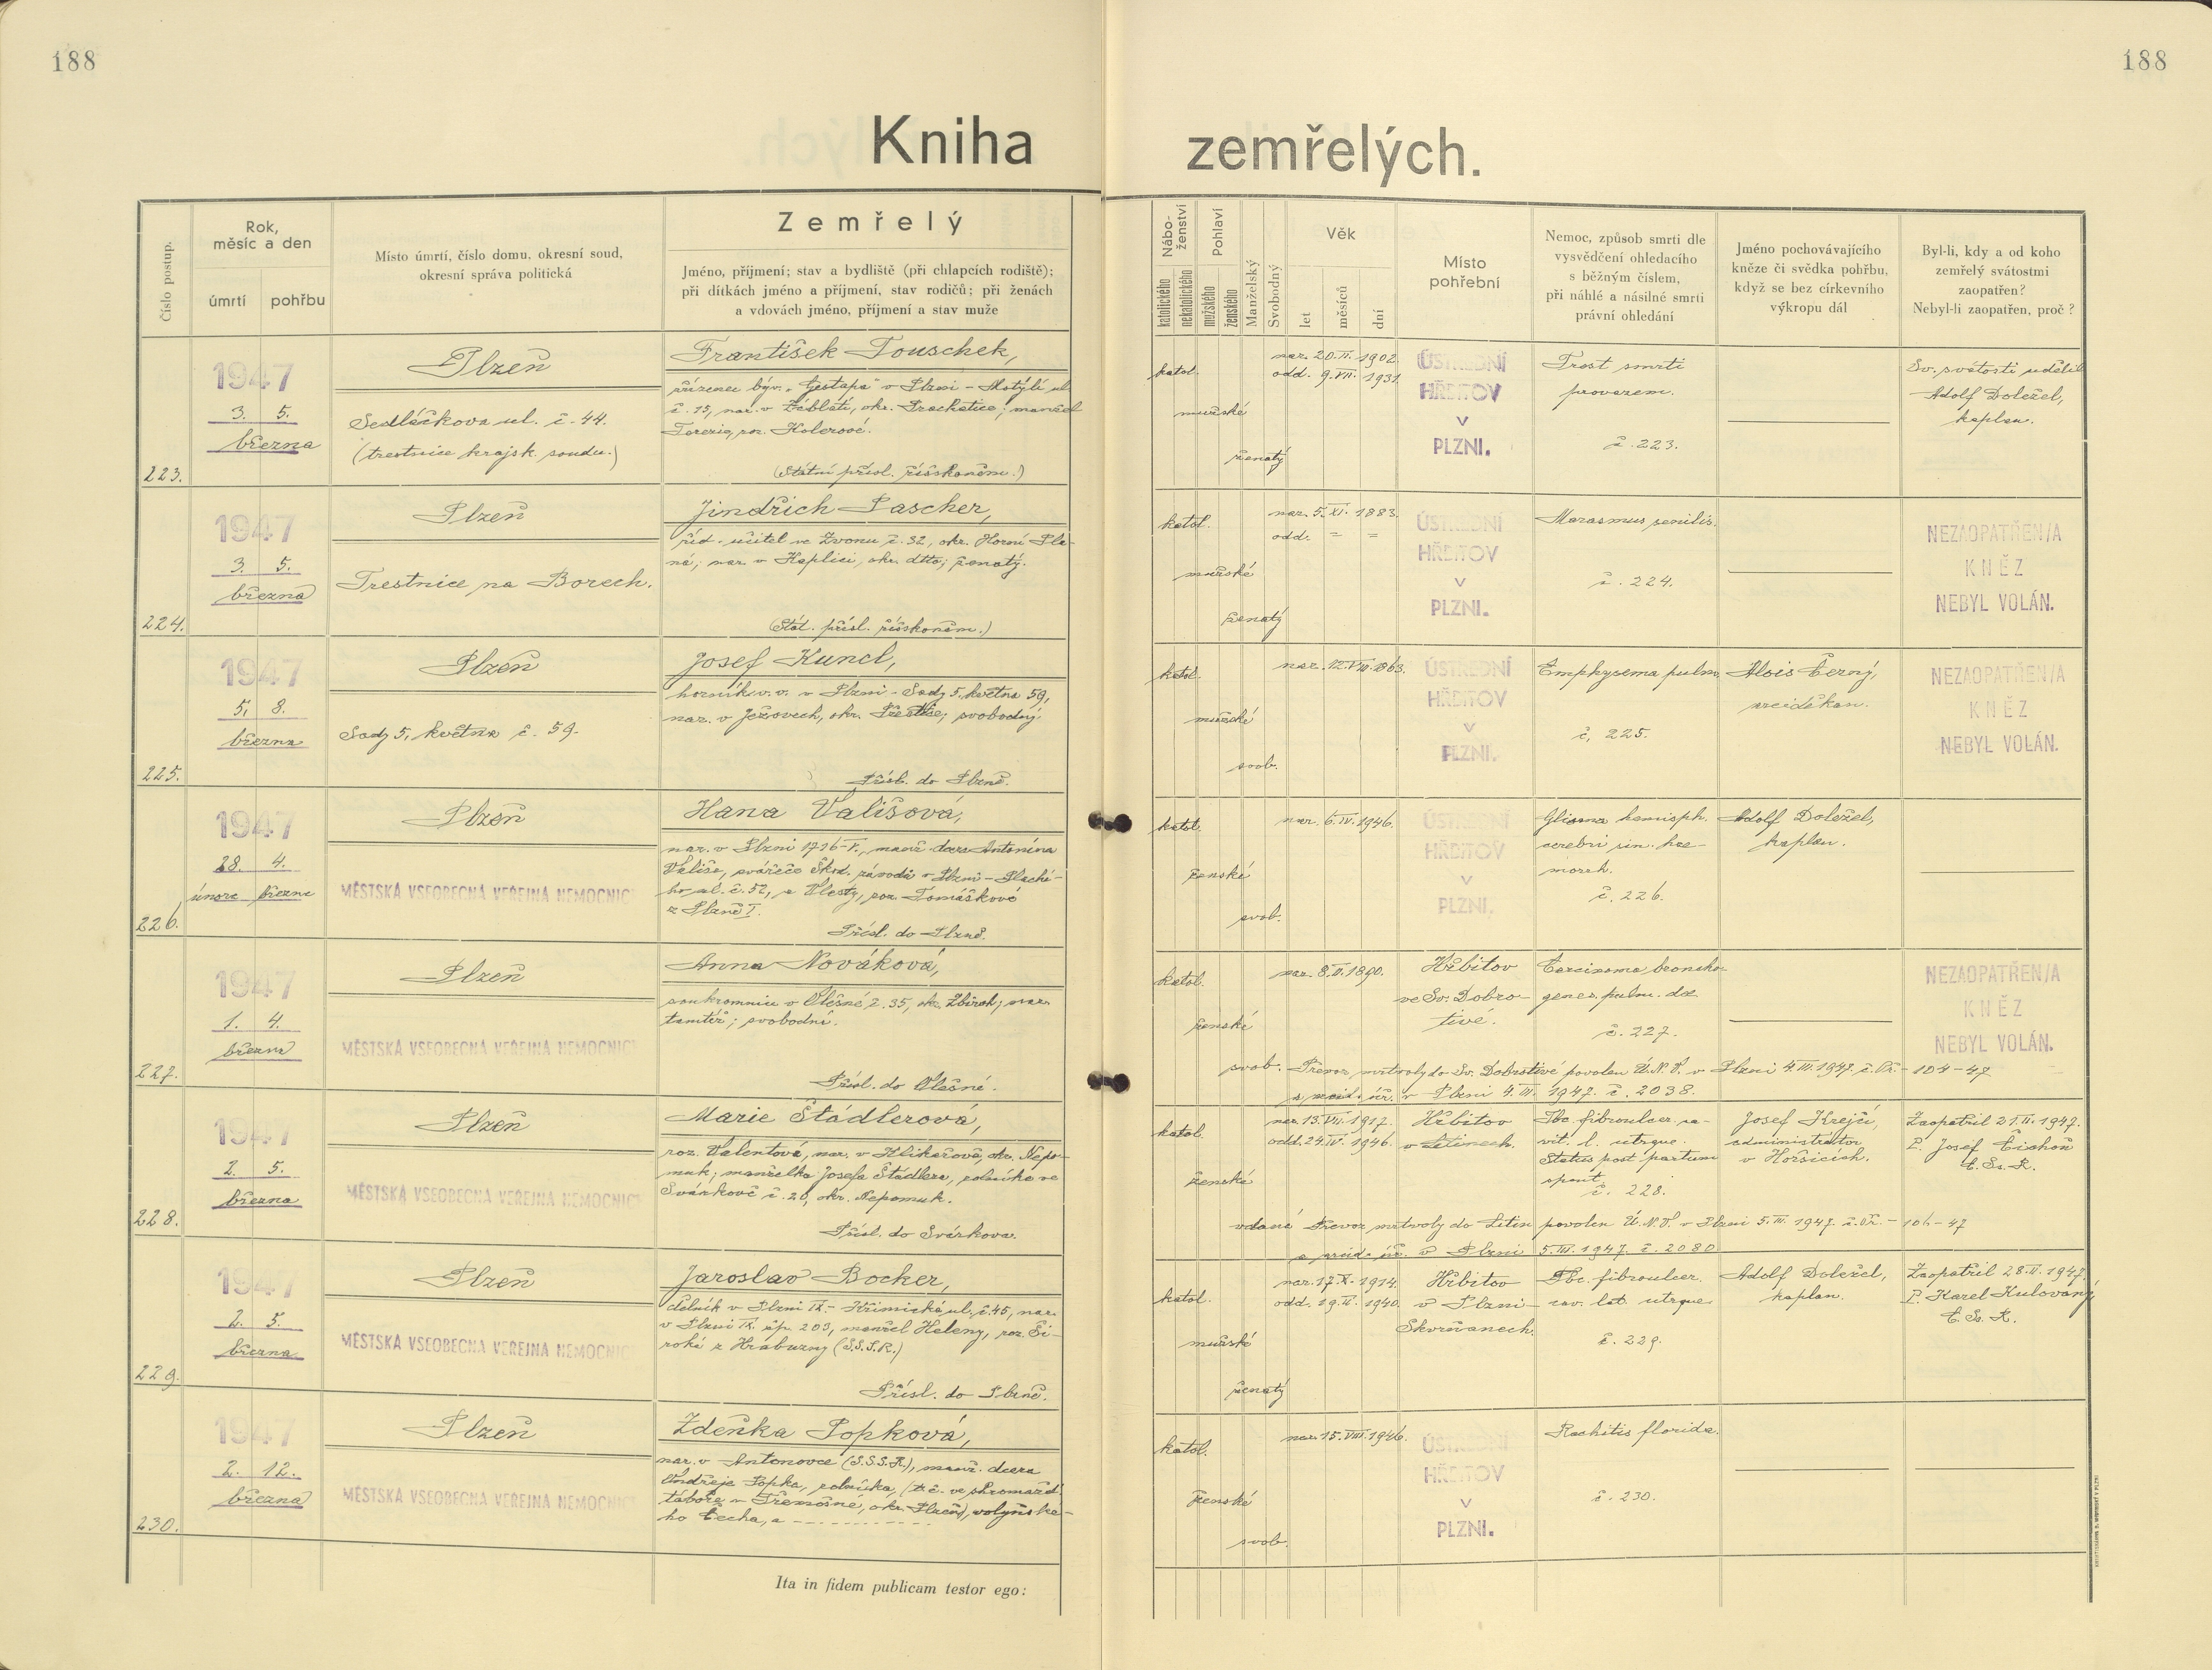 188
188
Kniha zemřelých.
Číslo postup.
Rok, měsíc a den
úmrtí
pohřbu
Místo úmrtí, číslo domu, okresní soud,
okresní správa politická
Zemřelý
Jméno, příjmení; stav a bydliště (při chlapcích rodiště);
při dítkách jméno a příjmení, stav rodičů; při ženách
a vdovách jméno, příjmení a stav muže
Nábo-
ženství
katolického
nekatolického
Pohlaví
mužského
ženského
Manželský
Svobodný
Věk
let
měsíců
dní
Místo
pohřební
Nemoc, způsob smrti dle
vysvědčení ohledacího
s běžným číslem,
při náhlé a násilné smrti
právní ohledání
Jméno pochovávajícího
kněze či svědka pohřbu,
když se bez církevního
výkropu dál
Byl-li, kdy a od koho
zemřelý svátostmi
zaopatřen?
Nebyl-li zaopatřen, proč?
223.
1947
3. 5.
března
Plzeň
Sedláčkova ul. č. 44.
(trestnice krajsk. soudu.)
František Touschek,
zřízenec býv. „Gestapa" v Plzni - Motýlí ul.
č. 15, nar. v Zábláti, okr. Prachatice; manžel
Terezie, roz. Holerové.
(Státní přísl. říšskoněm.)
katol.
mužské
ženatý
nar. 20. II. 1902.
odd. 9. VII. 1931.
ÚSTŘEDNÍ
HŘBITOV
V
PLZNI.
Trest smrti
provazem.
č. 223.
Sv. svátosti udělil
Adolf Doležel,
kaplan.
224.
1947
3. 5.
března
Plzeň
Trestnice na Borech.
Jindřich Pascher,
říd. učitel ve Zvonu č. 32, okr. Horní Pla-
ná; nar. v Kaplici, okr. dtto; ženatý.
(Stát. přísl. říšskoněm.)
katol.
mužské
ženatý
nar. 5. XI. 1883.
odd. = =
ÚSTŘEDNÍ
HŘBITOV
V
PLZNI.
Marasmus senilis.
č. 224.
NEZAOPATŘEN/A
KNĚZ
NEBYL VOLÁN.
225.
1947
5. 8.
března
Plzeň
Sady 5. května č. 59.
Josef Kuncl,
horník v. v. v Plzni - Sady 5. května 59,
nar. v Ježovech, okr. Přeštice; svobodný.
Přísl. do Plzně.
katol.
mužské
svob.
nar. 12. VIII. 1863.
ÚSTŘEDNÍ
HŘBITOV
V
PLZNI.
Emphysema pulm.
č. 225.
Alois Černý,
arciděkan.
NEZAOPATŘEN/A
KNĚZ
NEBYL VOLÁN.
226.
1947
28. 4.
února března
Plzeň
MĚSTSKÁ VŠEOBECNÁ VEŘEJNÁ NEMOCNICE
Hana Vališová,
nar. v Plzni 1716-V., manž. dcera Antonína
Vališe, svářeče Škod. závodů v Plzni - Plachého
ul. č. 52, a Vlasty, roz. Tomáškové
z Plzně I.
Přísl. do Plzně.
katol.
ženské
svob.
nar. 6. IV. 1946.
ÚSTŘEDNÍ
HŘBITOV
V
PLZNI.
Glioma hemisph.
cerebri sin. hae-
morrh.
č. 226.
Adolf Doležel,
kaplan.
227.
1947
1. 4.
března
Plzeň
MĚSTSKÁ VŠEOBECNÁ VEŘEJNÁ NEMOCNICE
Anna Nováková,
soukromnice v Olešné č. 35, okr. Zbiroh; nar.
tamtéž; svobodná.
Přísl. do Olešné.
katol.
ženské
svob.
nar. 8. II. 1890.
Hřbitov
ve Sv. Dobro-
tivé.
Carcinoma broncho-
genes pulm. dx.
č. 227.
NEZAOPATŘEN/A
KNĚZ
NEBYL VOLÁN.
Převoz mrtvoly do Sv. Dobrotivé povolen Ú.N.V. v Plzni 4. III. 1947. č. Př. - 104-47
a arcid. úř. v Plzni 4. III. 1947. č. 2038.
228.
1947
2. 5.
března
Plzeň
MĚSTSKÁ VŠEOBECNÁ VEŘEJNÁ NEMOCNICE
Marie Štádlerová,
roz. Valentová, nar. v Klikařově, okr. Nepo-
muk; manželka Josefa Štádlera, rolníka ve
Svárkově č. 20, okr. Nepomuk.
Přísl. do Svárkova.
katol.
ženské
vdaná
nar. 13. VII. 1917.
odd. 24. IV. 1946.
Hřbitov
v Letinech.
Tbc. fibroulcer. ca-
vit. l. utrque.
Status post partum
spont.
č. 228.
Josef Krejčí,
administrátor
v Horšicích.
Zaopatřil 21. II. 1947.
P. Josef Čichoň
C. Ss. R.
Převoz mrtvoly do Letin povolen Ú.N.V. v Plzni 5. III. 1947. č. Př. - 106-47
a arcid. úř. v Plzni 5. III. 1947. č. 2080
229.
1947
2. 5.
března
Plzeň
MĚSTSKÁ VŠEOBECNÁ VEŘEJNÁ NEMOCNICE
Jaroslav Bocker,
dělník v Plzni IX. - Křimická ul. č. 45, nar.
v Plzni IX. čp. 203, manžel Heleny, roz. Ši-
roké z Hrabuzny (S.S.S.R.)
Přísl. do Plzně.
katol.
mužské
ženatý
nar. 17. X. 1914.
odd. 19. II. 1940.
Hřbitov
v Plzni-
Skvrňanech.
Tbc. fibroulcer.
cav. lat. utrque
č. 229.
Adolf Doležel,
kaplan.
Zaopatřil 28. II. 1947.
P. Karel Kulovaný
C. Ss. R.
230.
1947
2. 12.
března
Plzeň
MĚSTSKÁ VŠEOBECNÁ VEŘEJNÁ NEMOCNICE
Zdeňka Popková,
nar. v Antonovce (S.S.S.R.), manž. dcera
Ondřeje Popka, rolníka, (t.č. ve shromažď.
táboře v Třemošné, okr. Plzeň), volyňské-
ho Čecha, a - - - - - - - - - - - -
katol.
ženské
svob.
nar. 15. VIII. 1946.
ÚSTŘEDNÍ
HŘBITOV
V
PLZNI.
Rachitis florida.
č. 230.
Ita in fidem publicam testor ego: